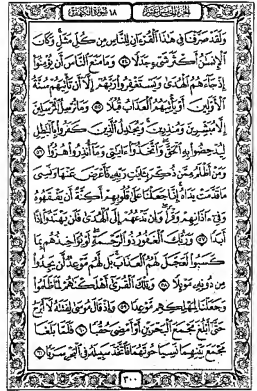 الجزء الخامس عشر ١٨ سورة الكهف
وَلَقَدْ صَرَّفْنَا فِى هَٰذَا ٱلْقُرْءَانِ لِلنَّاسِ مِن كُلِّ مَثَلٍ وَكَانَ
ٱلْإِنسَٰنُ أَكْثَرَ شَىْءٍ جَدَلًا ٥٤ وَمَا مَنَعَ ٱلنَّاسَ أَن يُؤْمِنُوٓا۟
إِذْ جَآءَهُمُ ٱلْهُدَىٰ وَيَسْتَغْفِرُوا۟ رَبَّهُمْ إِلَّآ أَن تَأْتِيَهُمْ سُنَّةُ
ٱلْأَوَّلِينَ أَوْ يَأْتِيَهُمُ ٱلْعَذَابُ قُبُلًا ٥٥ وَمَا نُرْسِلُ ٱلْمُرْسَلِينَ
إِلَّا مُبَشِّرِينَ وَمُنذِرِينَ وَيُجَٰدِلُ ٱلَّذِينَ كَفَرُوا۟ بِٱلْبَٰطِلِ
لِيُدْحِضُوا۟ بِهِ ٱلْحَقَّ وَٱتَّخَذُوٓا۟ ءَايَٰتِى وَمَآ أُنذِرُوا۟ هُزُوًا ٥٦
وَمَنْ أَظْلَمُ مِمَّن ذُكِّرَ بِـَٔايَٰتِ رَبِّهِۦ فَأَعْرَضَ عَنْهَا وَنَسِىَ
مَا قَدَّمَتْ يَدَاهُ إِنَّا جَعَلْنَا عَلَىٰ قُلُوبِهِمْ أَكِنَّةً أَن يَفْقَهُوهُ
وَفِىٓ ءَاذَانِهِمْ وَقْرًا وَإِن تَدْعُهُمْ إِلَى ٱلْهُدَىٰ فَلَن يَهْتَدُوٓا۟ إِذًا
أَبَدًا ٥٧ وَرَبُّكَ ٱلْغَفُورُ ذُو ٱلرَّحْمَةِ لَوْ يُؤَاخِذُهُم بِمَا
كَسَبُوا۟ لَعَجَّلَ لَهُمُ ٱلْعَذَابَ بَل لَّهُم مَّوْعِدٌ لَّن يَجِدُوا۟
مِن دُونِهِۦ مَوْئِلًا ٥٨ وَتِلْكَ ٱلْقُرَىٰٓ أَهْلَكْنَٰهُمْ لَمَّا ظَلَمُوا۟
وَجَعَلْنَا لِمَهْلِكِهِم مَّوْعِدًا ٥٩ وَإِذْ قَالَ مُوسَىٰ لِفَتَىٰهُ لَآ أَبْرَحُ
حَتَّىٰٓ أَبْلُغَ مَجْمَعَ ٱلْبَحْرَيْنِ أَوْ أَمْضِىَ حُقُبًا ٦٠ فَلَمَّا بَلَغَا
مَجْمَعَ بَيْنِهِمَا نَسِيَا حُوتَهُمَا فَٱتَّخَذَ سَبِيلَهُۥ فِى ٱلْبَحْرِ سَرَبًا ٦١
٣٠٠